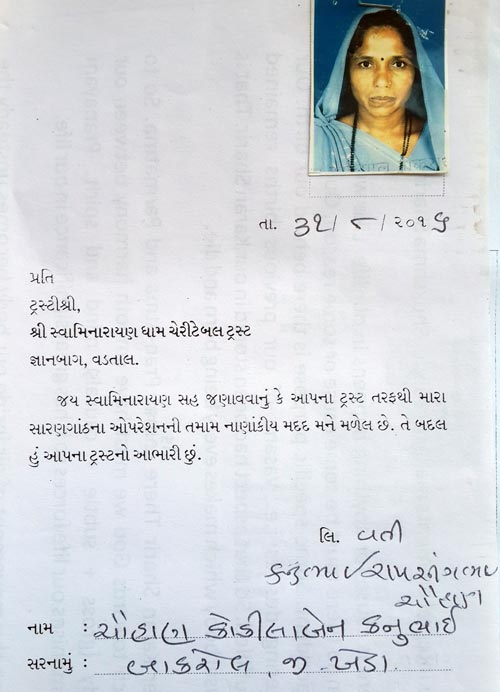 તા. ૩૧/૮/૨૦૧૬
પ્રતિ
ટ્રસ્ટીશ્રી,
શ્રી સ્વામિનારાયણ ધામ ચેરીટેબલ ટ્રસ્ટ
જ્ઞાનબાગ, વડતાલ.
જય સ્વામિનારાયણ સહ જણાવવાનું કે આપના ટ્રસ્ટ તરફથી મારા
સારણગાંઠના ઓપરેશનની તમામ નાણાંકીય મદદ મને મળેલ છે. તે બદલ
હું આપના ટ્રસ્ટનો આભારી છું.
લિ. વતી
કનુભાઈ રાયસંગભાઈ
ચૌહાણ
નામ : ચૌહાણ કોકીલાબેન કનુભાઈ
સરનામું : બાકરોલ, જી. ખેડા.